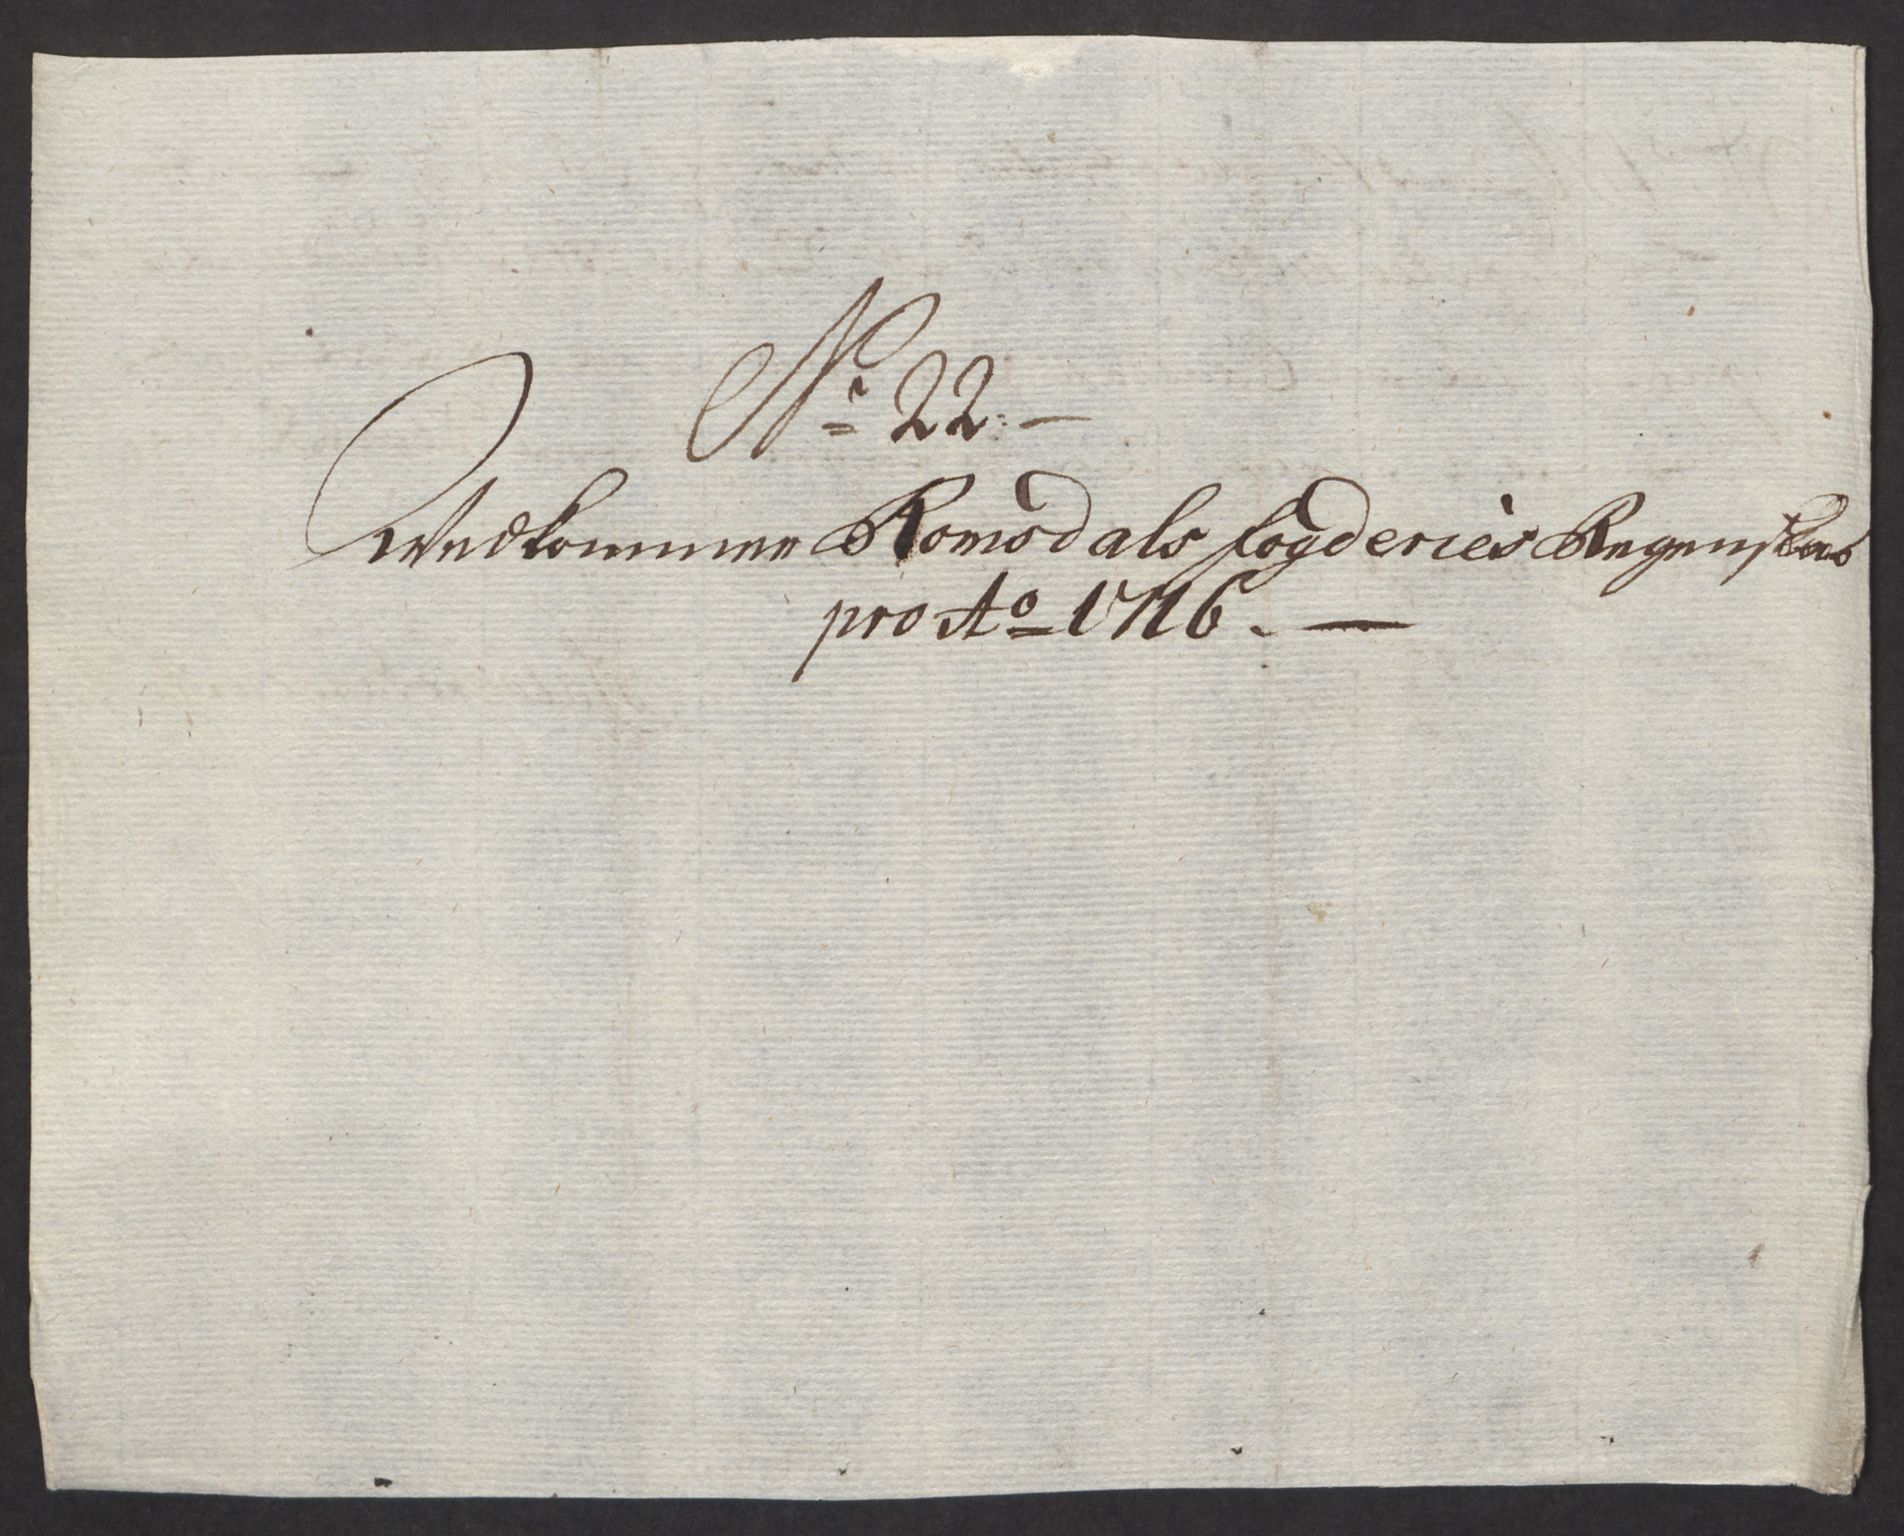 No 22.—
Vedkommer Romsdals fogderies Regenskab
pro Ao 1716. —